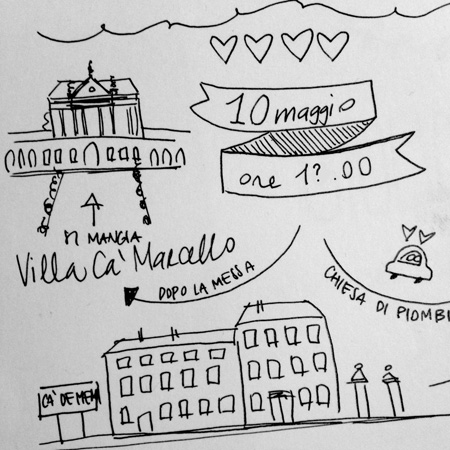 10 maggio
ore 1?.00
SI MANGIA
Villa Ca' Marcello
DOPO LA MESSA
CHIESA DI PIOMBI
CA' DE MEM